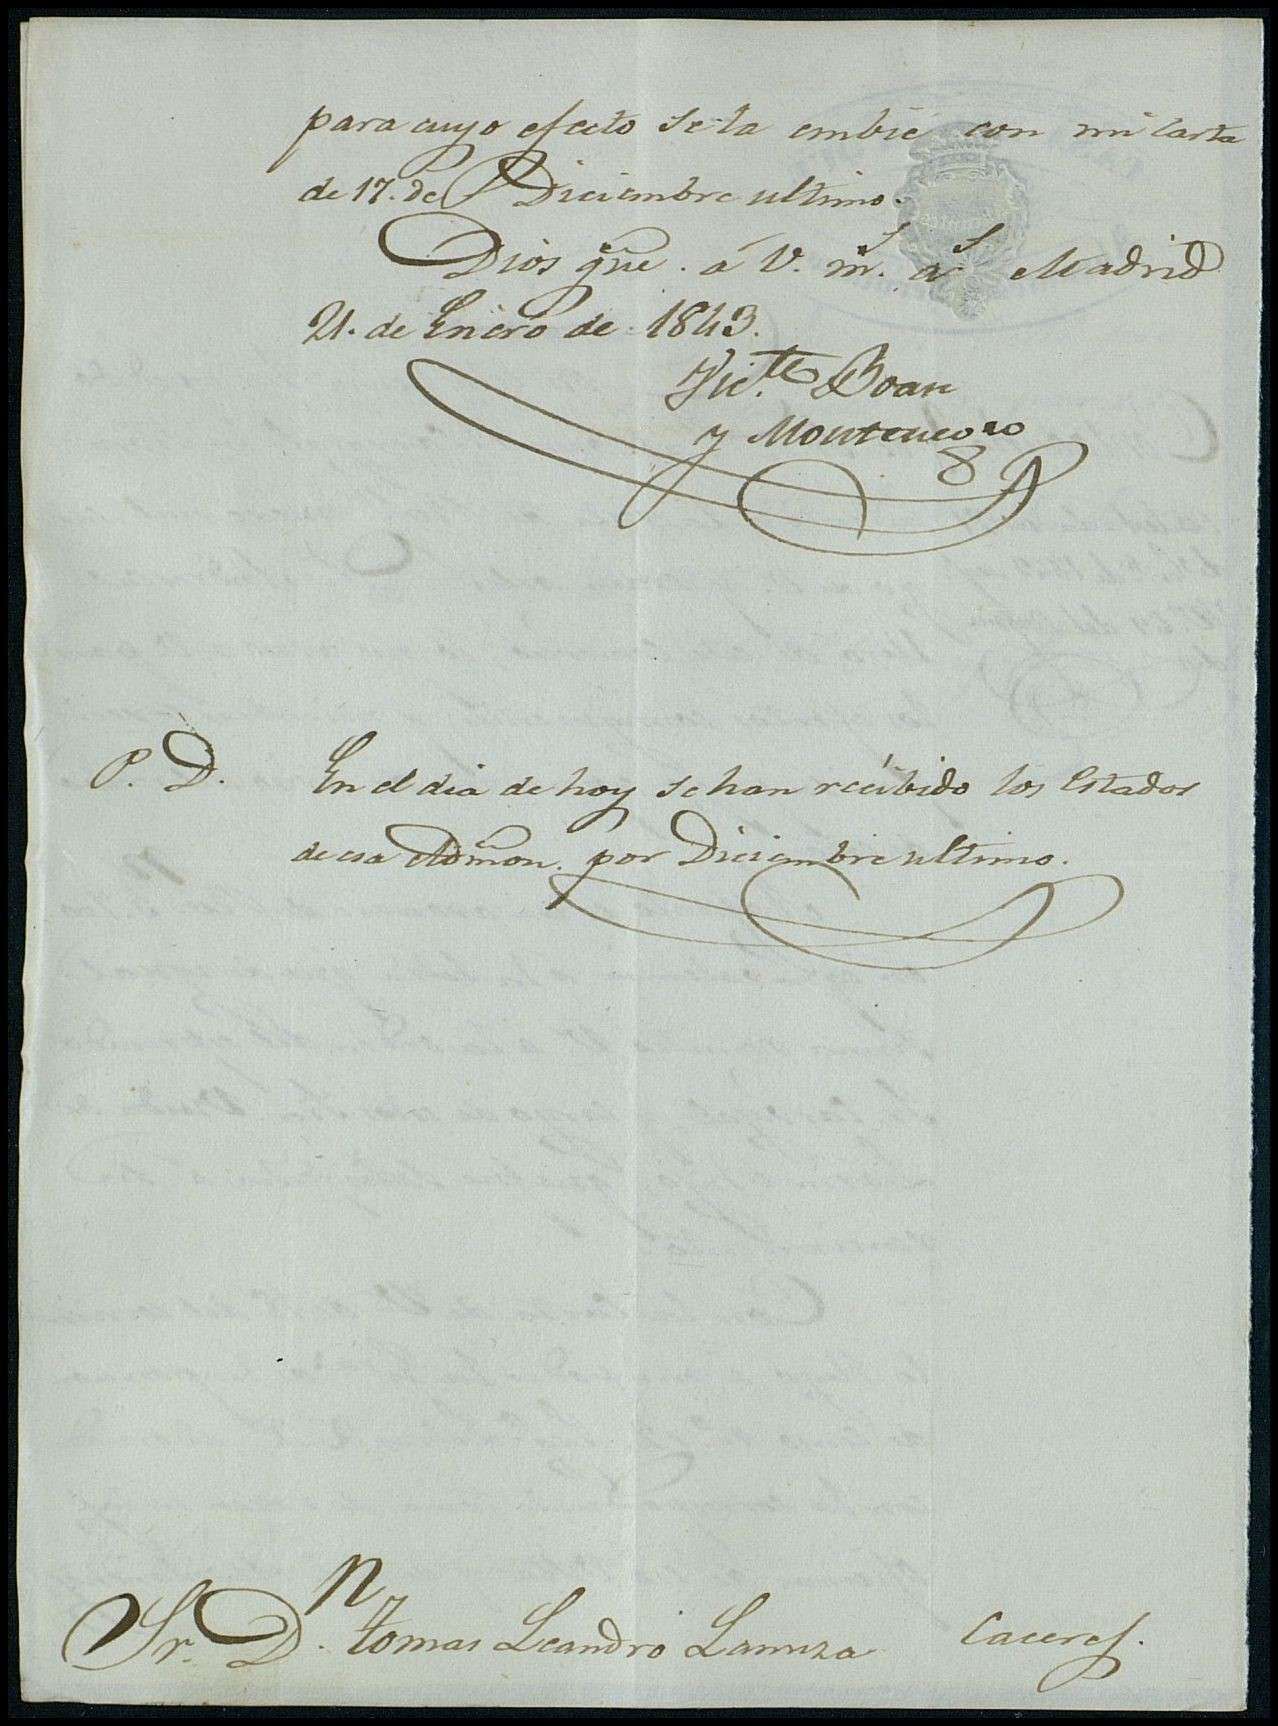 para cuyo efecto se la embié con mi Carta
de 17. de Diciembre ultimo.
Dios gũe. á V. m.s a.s Madrid
21. de Enero de 1843.
Vic.te Boan
y Montenegro
P. D. En el dia de hoy se han recibido los Estados
de esa Admõn. por Diciembre ultimo.
Sr. D.n Tomas Leandro Lanuza Caceres.